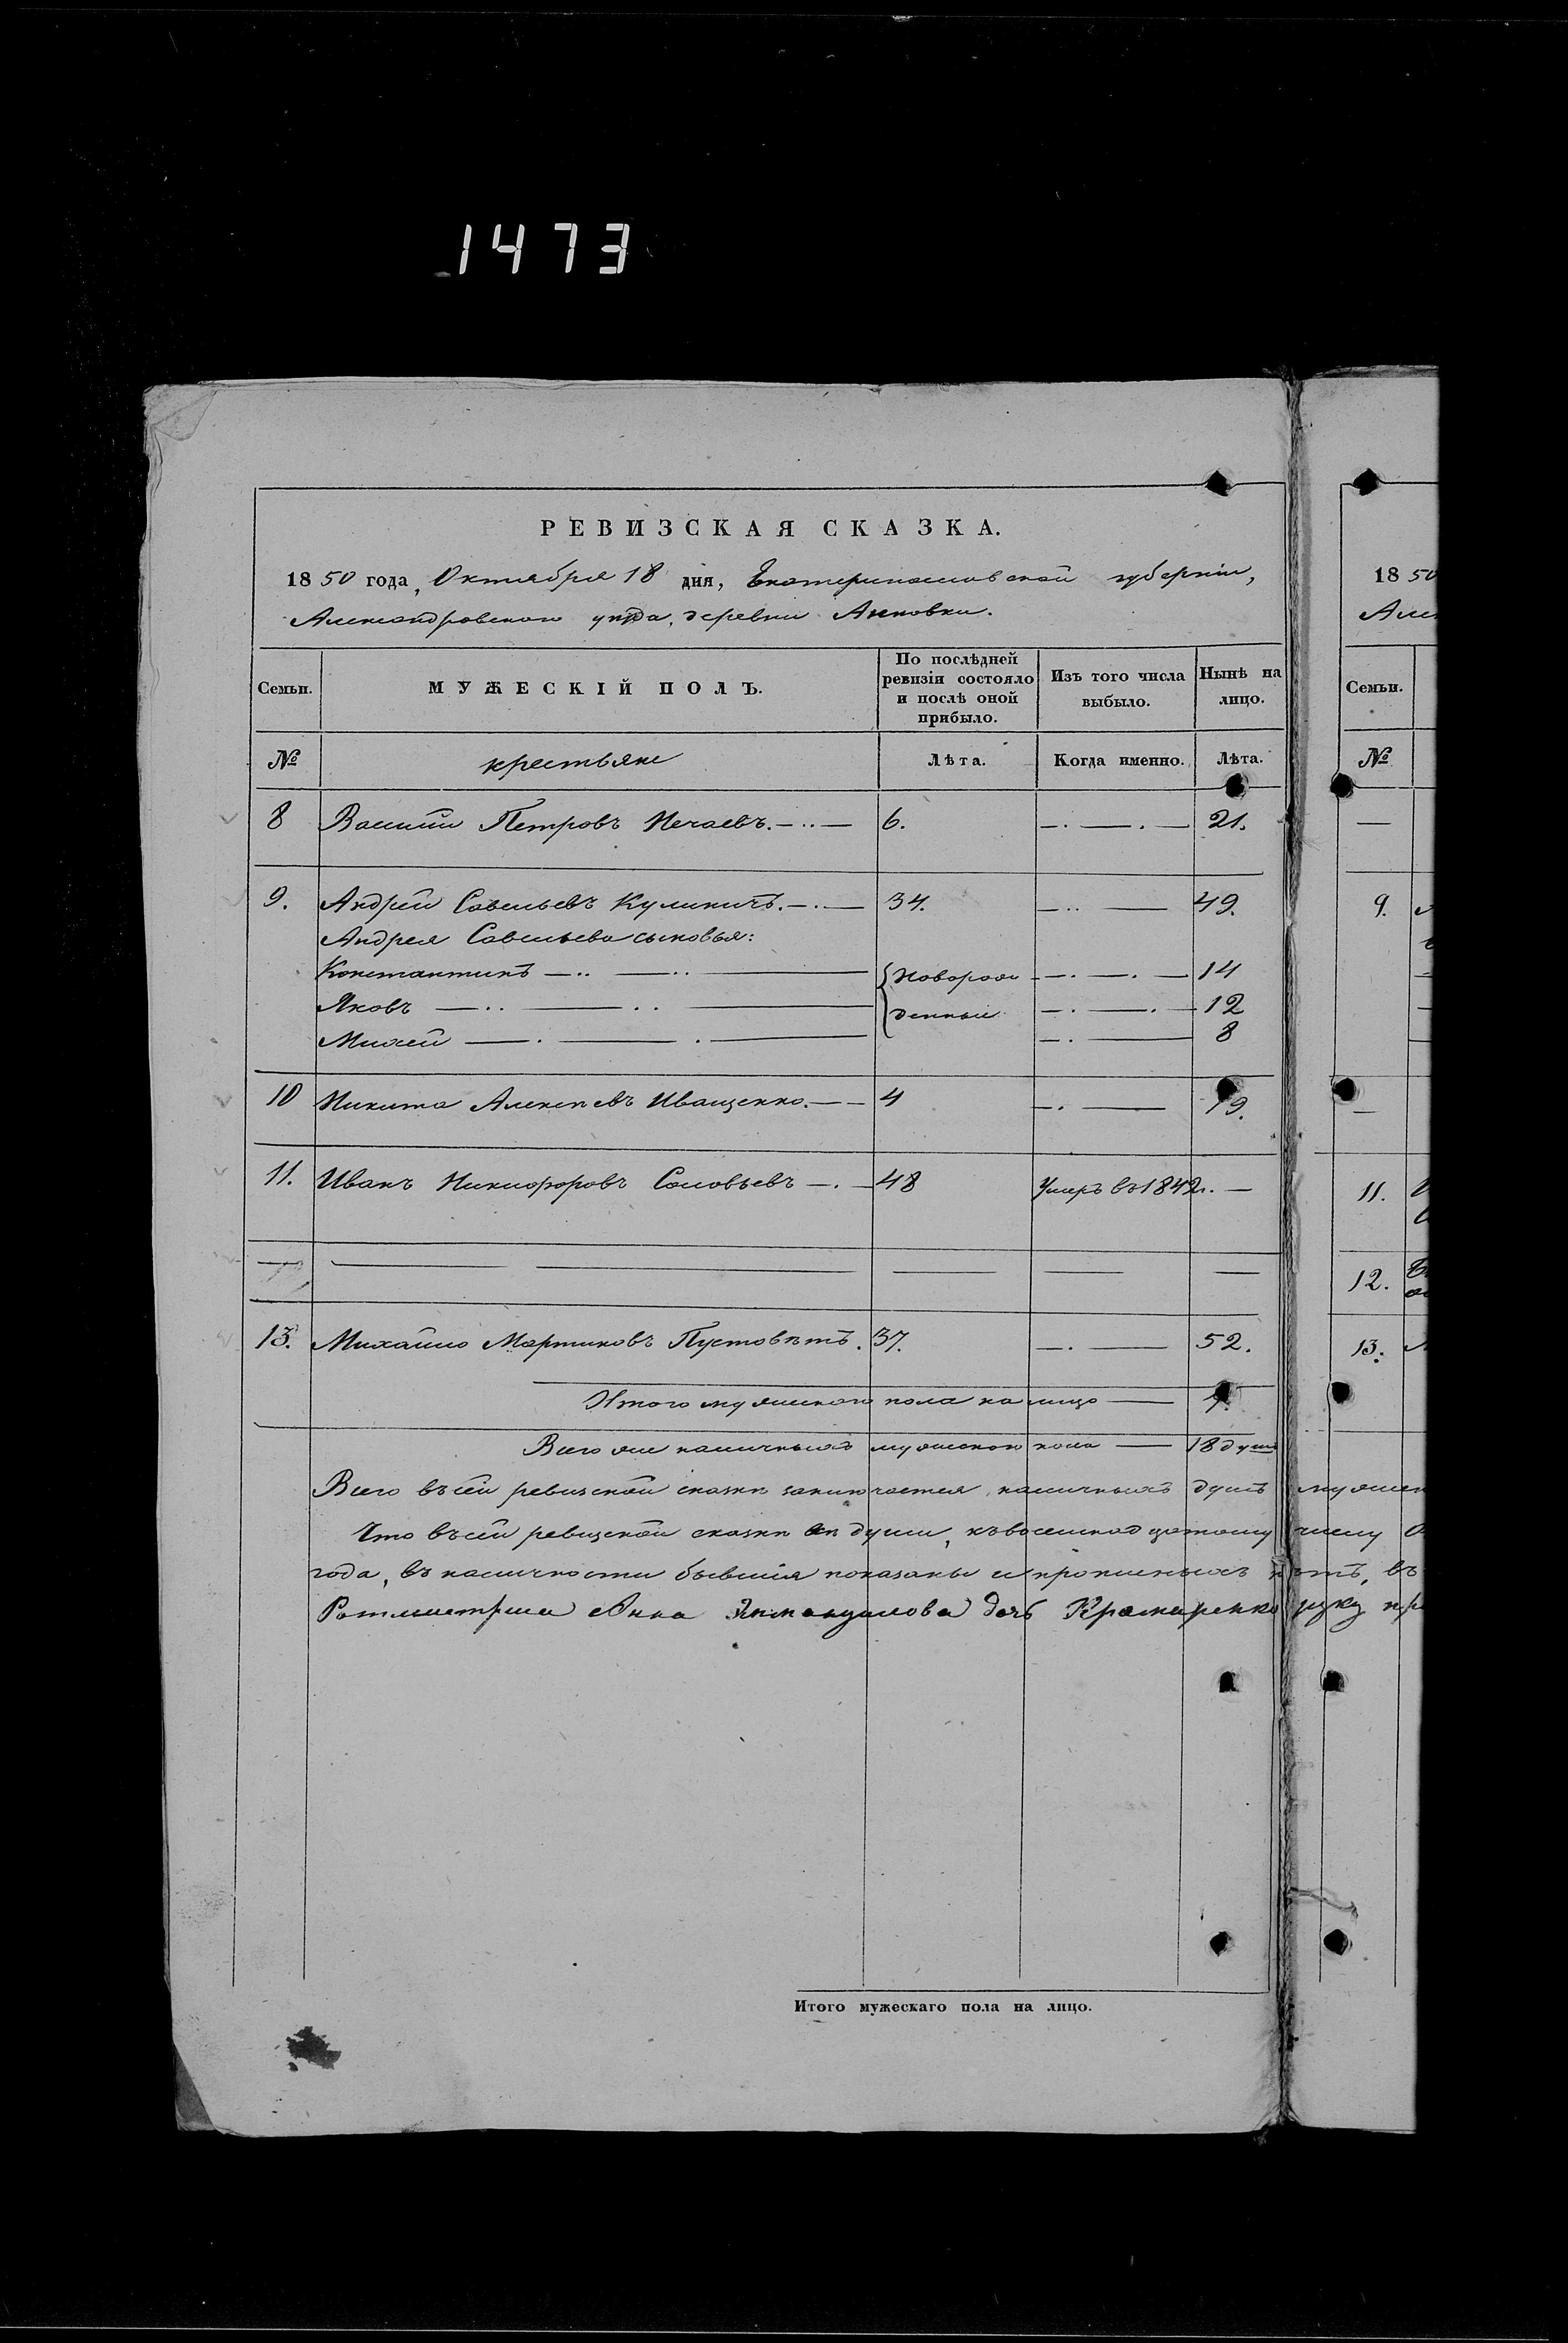 1473
РЕВИЗСКАЯ СКАЗКА.
1850 года, Октября 18 дня, Екатеринославской губерніи,
Александровского уѣзда, деревни Анновки.
Семьи.
МУЖЕСКІЙ ПОЛЪ.
По послѣдней ревизіи состояло и послѣ оной прибыло.
Изъ того числа выбыло.
Нынѣ на лицо.
№ крестьяне Лѣта. Когда именно. Лѣта.
8 Василій Петровъ Нечаевъ. 6. 21.
9. Андрей Савельевъ Кулиничъ. 34. 49.
Андрея Савельева сыновья:
Константинъ Новорож 14
Яковъ денные 12
Михей 8
10 Никита Алексѣевъ Иващенко. 4 19.
11. Иванъ Никифоровъ Соловьевъ 48 Умеръ въ 1842г.
13. Михайло Мартиновъ Пустовѣтъ. 37. 52.
Итого мужескаго пола на лицо 7.
Всего же наличныхъ мужескаго пола 18 душъ
Всего въ сей ревизской сказкѣ заключается наличныхъ душъ мужеск
Что въ сей ревизской сказкѣ всѣ души, къ восемнадцатому числу О
года, въ наличности бывшія показаны и прописныхъ нѣтъ, въ
Ротмистрша Анна Эммануилова дочь Крамаренко руку пр
Итого мужескаго пола на лицо.
1850
Алек
Семьи.
№
9.
11.
12.
13.